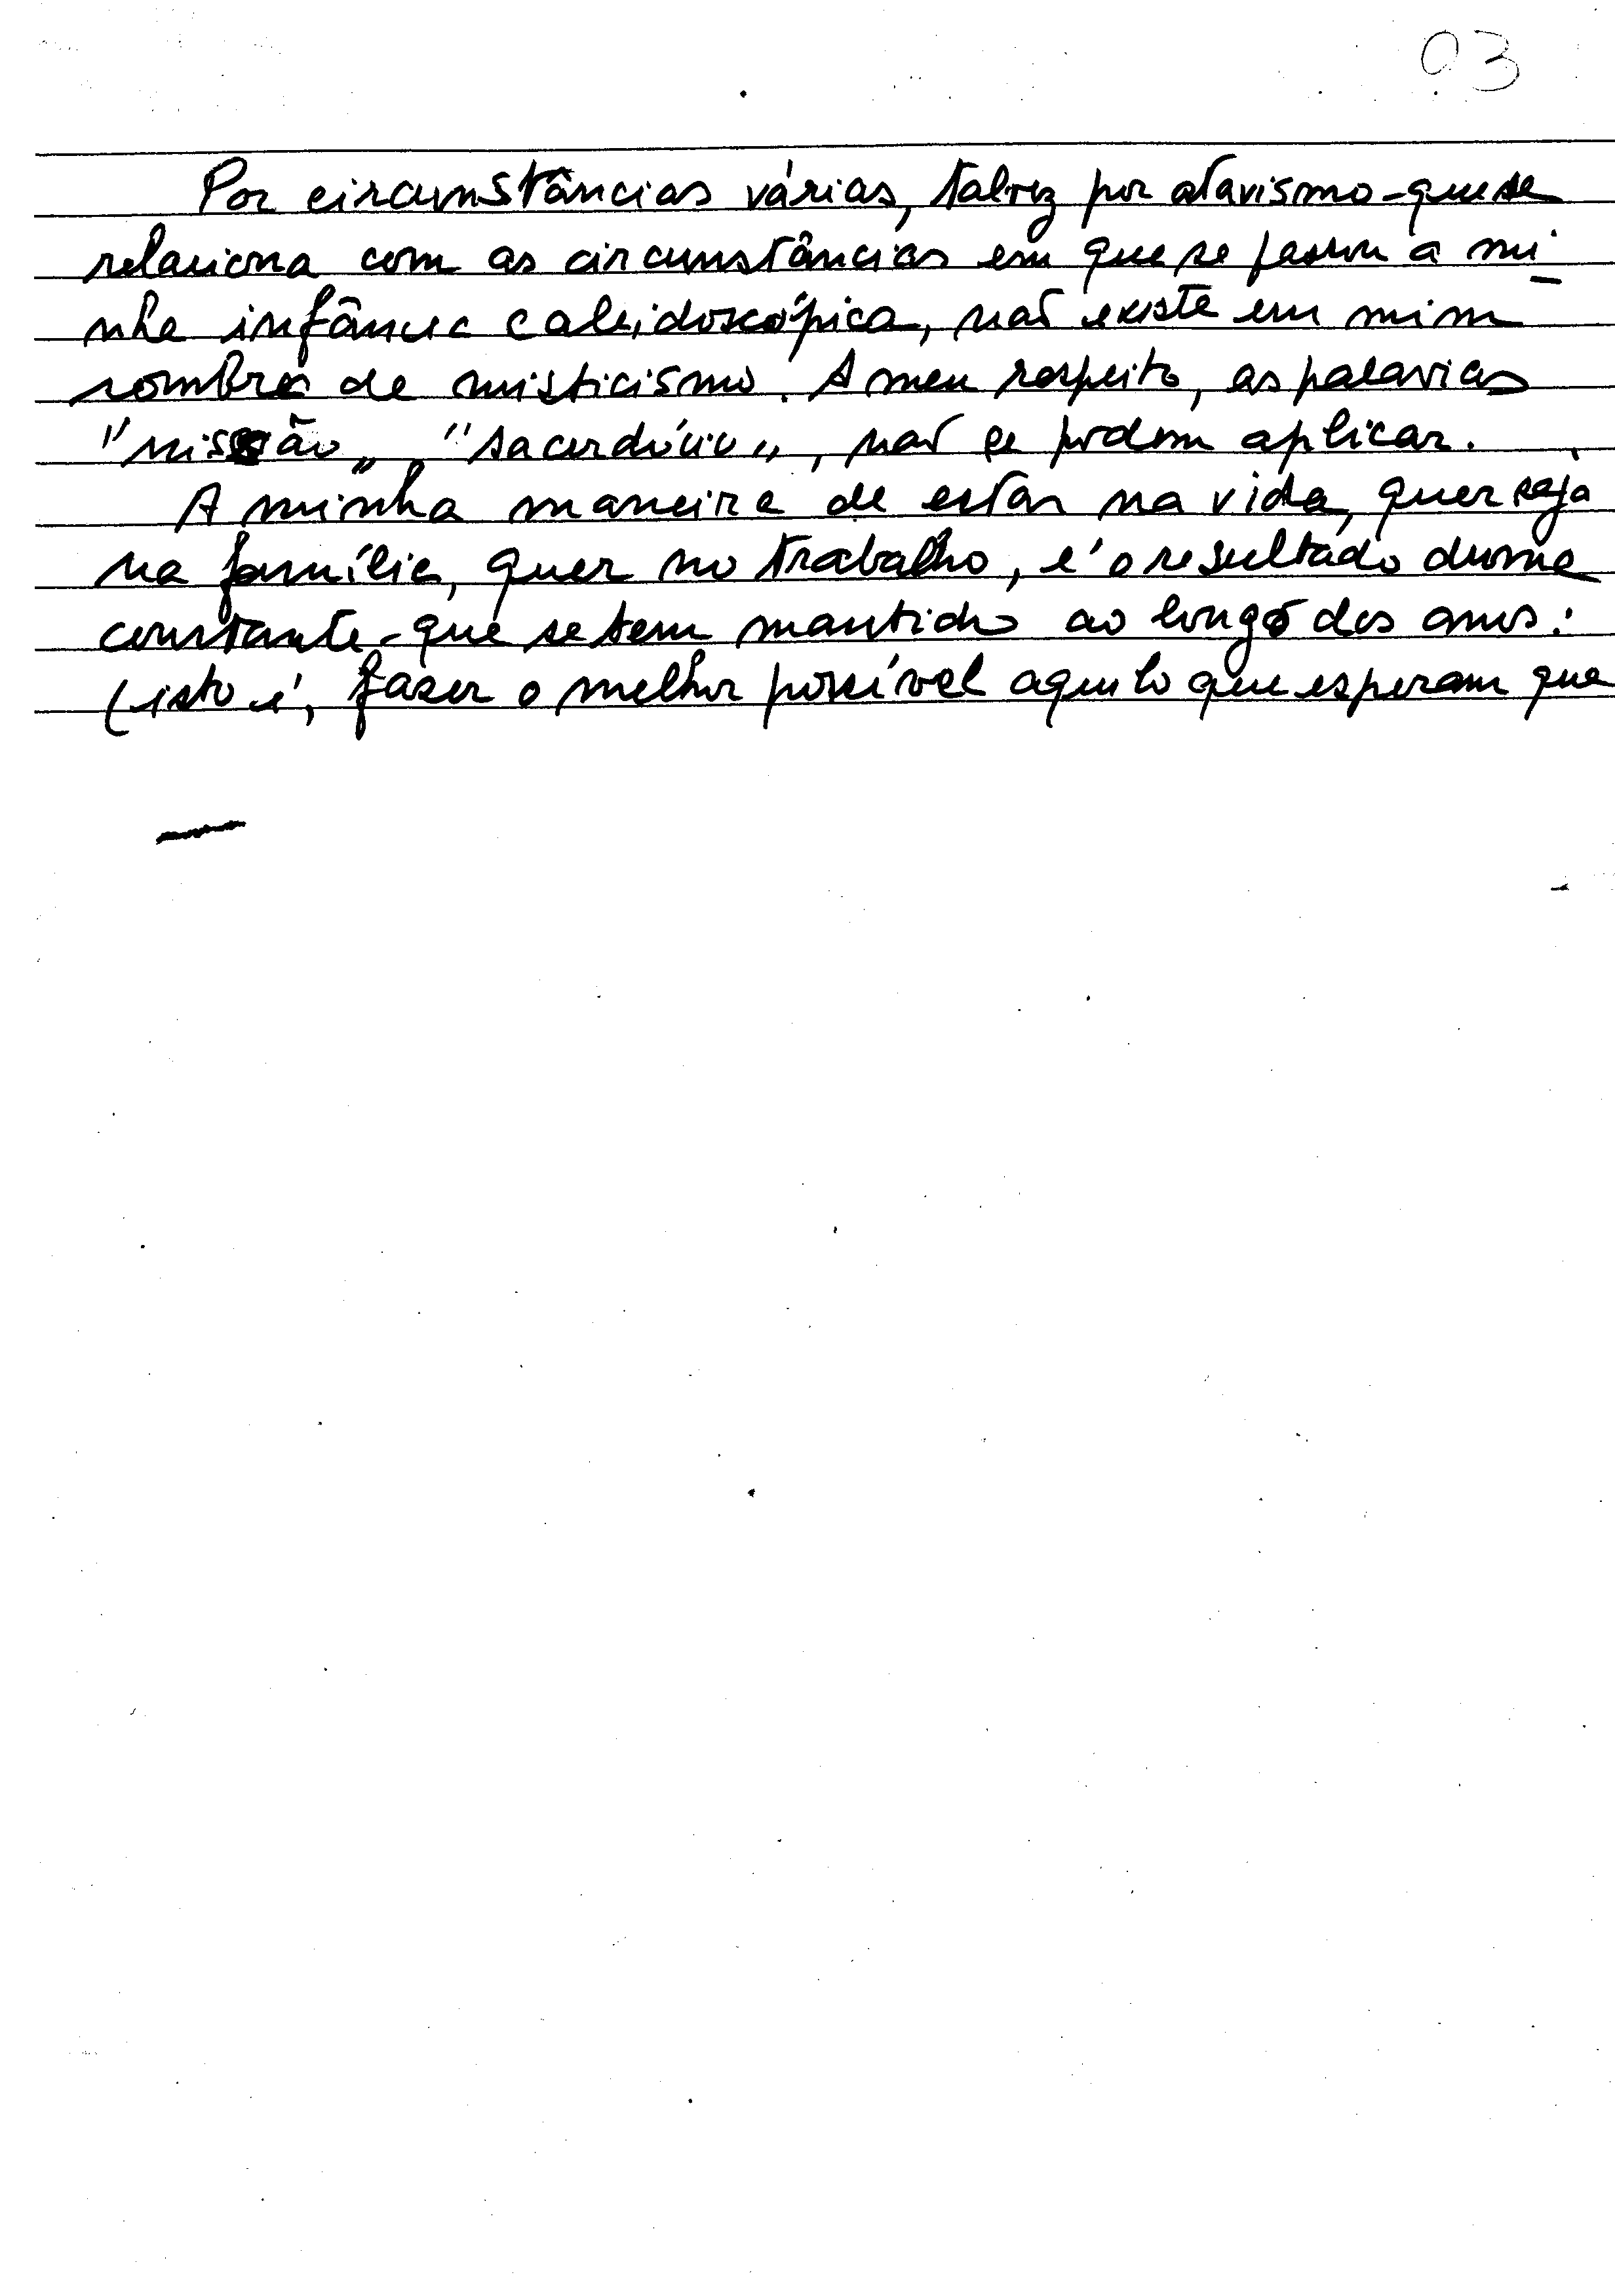 03
Por circunstâncias várias, talvez por atavismo - que se
relaciona com as circunstâncias em que se passou a mi-
nha infância caleidoscópica, não existe em mim
sombra de misticismo. A meu respeito, as palavras
"missão", "sacerdócio", não se podem aplicar.
A minha maneira de estar na vida, quer seja
na família, quer no trabalho, é o resultado duma
constante - que se tem mantido ao longo dos anos:
(isto é, fazer o melhor possível aquilo que esperam que